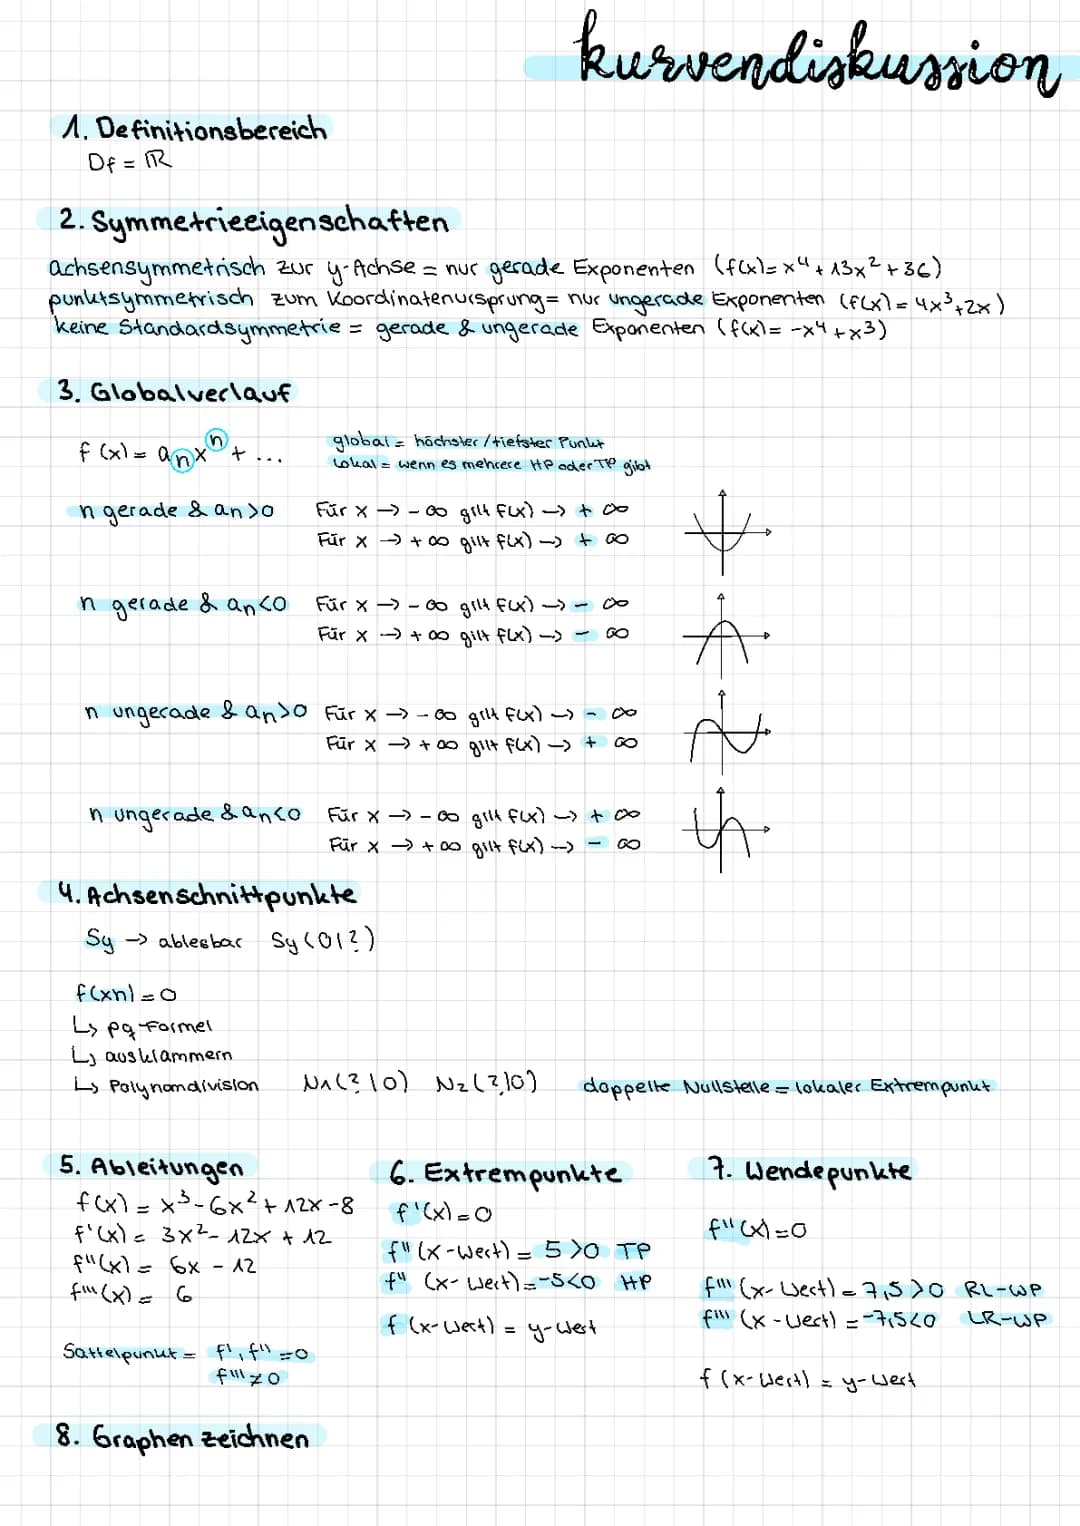 kurvendiskussion
1. Definitionsbereich
Df = ℝ
2. Symmetrieeigenschaften
achsensymmetrisch zur y-Achse = nur gerade Exponenten (f(x) = x⁴ + 13x² + 36)
punktsymmetrisch zum Koordinatenursprung = nur ungerade Exponenten (f(x) = 4x³ + 2x)
keine Standardsymmetrie = gerade & ungerade Exponenten (f(x) = -x⁴ + x³)
3. Globalverlauf
f(x) = aₙxⁿ + ...
global = höchster/tiefster Punkt
lokal = wenn es mehrere HP oder TP gibt
n gerade & an>0 Für x → -∞ gilt f(x) → + ∞
Für x → +∞ gilt f(x) → + ∞
n gerade & an<0 Für x → -∞ gilt f(x) → - ∞
Für x → +∞ gilt f(x) → - ∞
n ungerade & an>0 Für x → -∞ gilt f(x) → - ∞
Für x → +∞ gilt f(x) → + ∞
n ungerade & an<0 Für x → -∞ gilt f(x) → + ∞
Für x → +∞ gilt f(x) → - ∞
4. Achsenschnittpunkte
Sy → ablesbar Sy(0|?)
f(xn) = 0
↳ pq-Formel
↳ ausklammern
↳ Polynomdivision N1(?|0) N2(?|0) doppelte Nullstelle = lokaler Extrempunkt
5. Ableitungen
f(x) = x³ - 6x² + 12x - 8
f'(x) = 3x² - 12x + 12
f''(x) = 6x - 12
f'''(x) = 6
Sattelpunkt = f', f'' = 0
f''' ≠ 0
6. Extrempunkte
f'(x) = 0
f''(x-Wert) = 5 > 0 TP
f'' (x-Wert) = -5 < 0 HP
f (x-Wert) = y-Wert
7. Wendepunkte
f''(x) = 0
f''' (x-Wert) = 7,5 > 0 RL-WP
f''' (x-Wert) = -7,5 < 0 LR-WP
f (x-Wert) = y-Wert
8. Graphen zeichnen